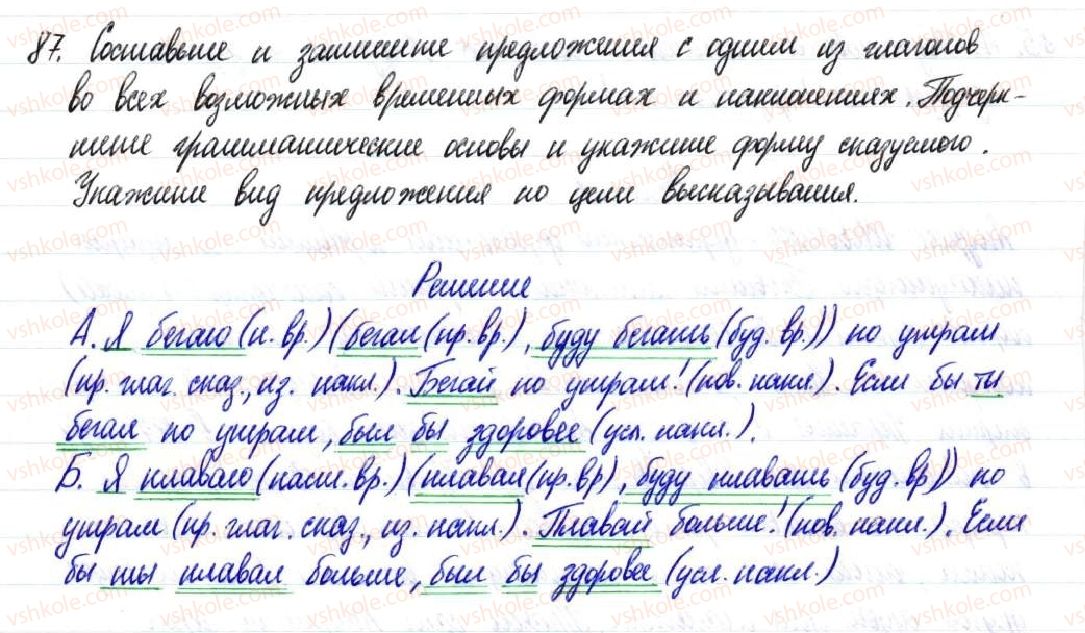 87. Составьте и запишите предложения с одним из глаголов
во всех возможных временных формах и наклонениях. Подчерк-
ните грамматические основы и укажите форму сказуемого.
Укажите вид предложения по цели высказывания.
Решение
А. Я бегаю (н. вр.) (бегал (пр. вр.), буду бегать (буд. вр.)) по утрам
(пр. глаг. сказ., из. накл.). Бегай по утрам! (пов. накл.). Если бы ты
бегал по утрам, был бы здоровее (усл. накл.).
Б. Я плаваю (наст. вр.) (плавал (пр. вр), буду плавать (буд. вр)) по
утрам (пр. глаг. сказ., из. накл.). Плавай больше! (пов. накл.). Если
бы ты плавал больше, был бы здоровее (усл. накл.)
vshkole.com